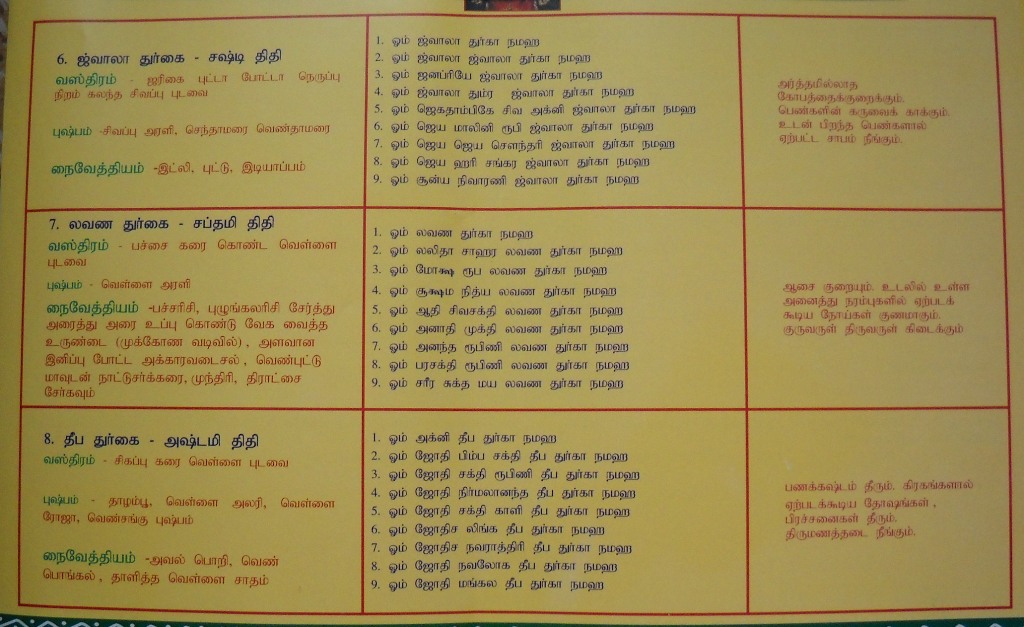 6. ஜ்வாலா துர்கை - சஷ்டி திதி
வஸ்திரம் - ஜரிகை புட்டா போட்டா நெருப்பு
நிறம் கலந்த சிவப்பு புடவை
புஷ்பம் -சிவப்பு அரளி, செந்தாமரை வெண்தாமரை
நைவேத்தியம் -இட்லி, புட்டு, இடியாப்பம்
1. ஓம் ஜ்வாலா துர்கா நமஹ
2. ஓம் ஜ்வாலா ஜ்வாலா துர்கா நமஹ
3. ஓம் ஜனப்ரியே ஜ்வாலா துர்கா நமஹ
4. ஓம் ஜ்வாலா தும்ர ஜ்வாலா துர்கா நமஹ
5. ஓம் ஜெகதாம்பிகே சிவ அக்னி ஜ்வாலா துர்கா நமஹ
6. ஓம் ஜெய மாலினி ரூபி ஜ்வாலா துர்கா நமஹ
7. ஓம் ஜெய ஜெய சௌந்தரி ஜ்வாலா துர்கா நமஹ
8. ஓம் ஜெய ஹரி சங்கர ஜ்வாலா துர்கா நமஹ
9. ஓம் சூன்ய நிவாரணி ஜ்வாலா துர்கா நமஹ
அர்த்தமில்லாத
கோபத்தைக்குறைக்கும்.
பெண்களின் கருவைக் காக்கும்.
உடன் பிறந்த பெண்களால்
ஏற்பட்ட சாபம் நீங்கும்.
7. லவண துர்கை - சப்தமி திதி
வஸ்திரம் - பச்சை கரை கொண்ட வெள்ளை
புடவை
புஷ்பம் - வெள்ளை அரளி
நைவேத்தியம் -பச்சரிசி, புழுங்கலரிசி சேர்த்து
அரைத்து அரை உப்பு கொண்டு வேக வைத்த
உருண்டை (முக்கோண வடிவில்) , அளவான
இனிப்பு போட்ட அக்காரவடைசல் , வெண்புட்டு
மாவுடன் நாட்டுசர்க்கரை, முந்திரி, திராட்சை
சேர்கவும்
1. ஓம் லவண துர்கா நமஹ
2. ஓம் லலிதா சாஹர லவண துர்கா நமஹ
3. ஓம் மோக்ஷ ரூப லவண துர்கா நமஹ
4. ஓம் சூக்ஷம நித்ய லவண துர்கா நமஹ
5. ஓம் ஆதி சிவசக்தி லவண துர்கா நமஹ
6. ஓம் அனாதி முக்தி லவண துர்கா நமஹ
7. ஓம் அனந்த ரூபிணி லவண துர்கா நமஹ
8. ஓம் பரசக்தி ரூபிணி லவண துர்கா நமஹ
9. ஓம் சரீர சுக்த மய லவண துர்கா நமஹ
ஆசை குறையும். உடலில் உள்ள
அனைத்து நரம்புகளில் ஏற்படக்
கூடிய நோய்கள் குணமாகும்.
குருவருள் திருவருள் கிடைக்கும்
8. தீப துர்கை - அஷ்டமி திதி
வஸ்திரம் - சிகப்பு கரை வெள்ளை புடவை
புஷ்பம் - தாழம்பூ, வெள்ளை அலரி, வெள்ளை
ரோஜா, வெண்சங்கு புஷ்பம்
நைவேத்தியம் -அவல் பொறி, வெண்
பொங்கல் , தாளித்த வெள்ளை சாதம்
1. ஓம் அக்னி தீப துர்கா நமஹ
2. ஓம் ஜோதி பிம்ப சக்தி தீப துர்கா நமஹ
3. ஓம் ஜோதி சக்தி ரூபிணி தீப துர்கா நமஹ
4. ஓம் ஜோதி நிர்மலானந்த தீப துர்கா நமஹ
5. ஓம் ஜோதி சக்தி காளி தீப துர்கா நமஹ
6. ஓம் ஜோதிச லிங்க தீப துர்கா நமஹ
7. ஓம் ஜோதிச நவராத்திரி தீப துர்கா நமஹ
8. ஓம் ஜோதி நவலோக தீப துர்கா நமஹ
9. ஓம் ஜோதி மங்கல தீப துர்கா நமஹ
பணக்கஷ்டம் தீரும். கிரகங்களால்
ஏற்படக்கூடிய தோஷங்கள் ,
பிரச்சனைகள் தீரும்.
திருமணத்தடை நீங்கும்.